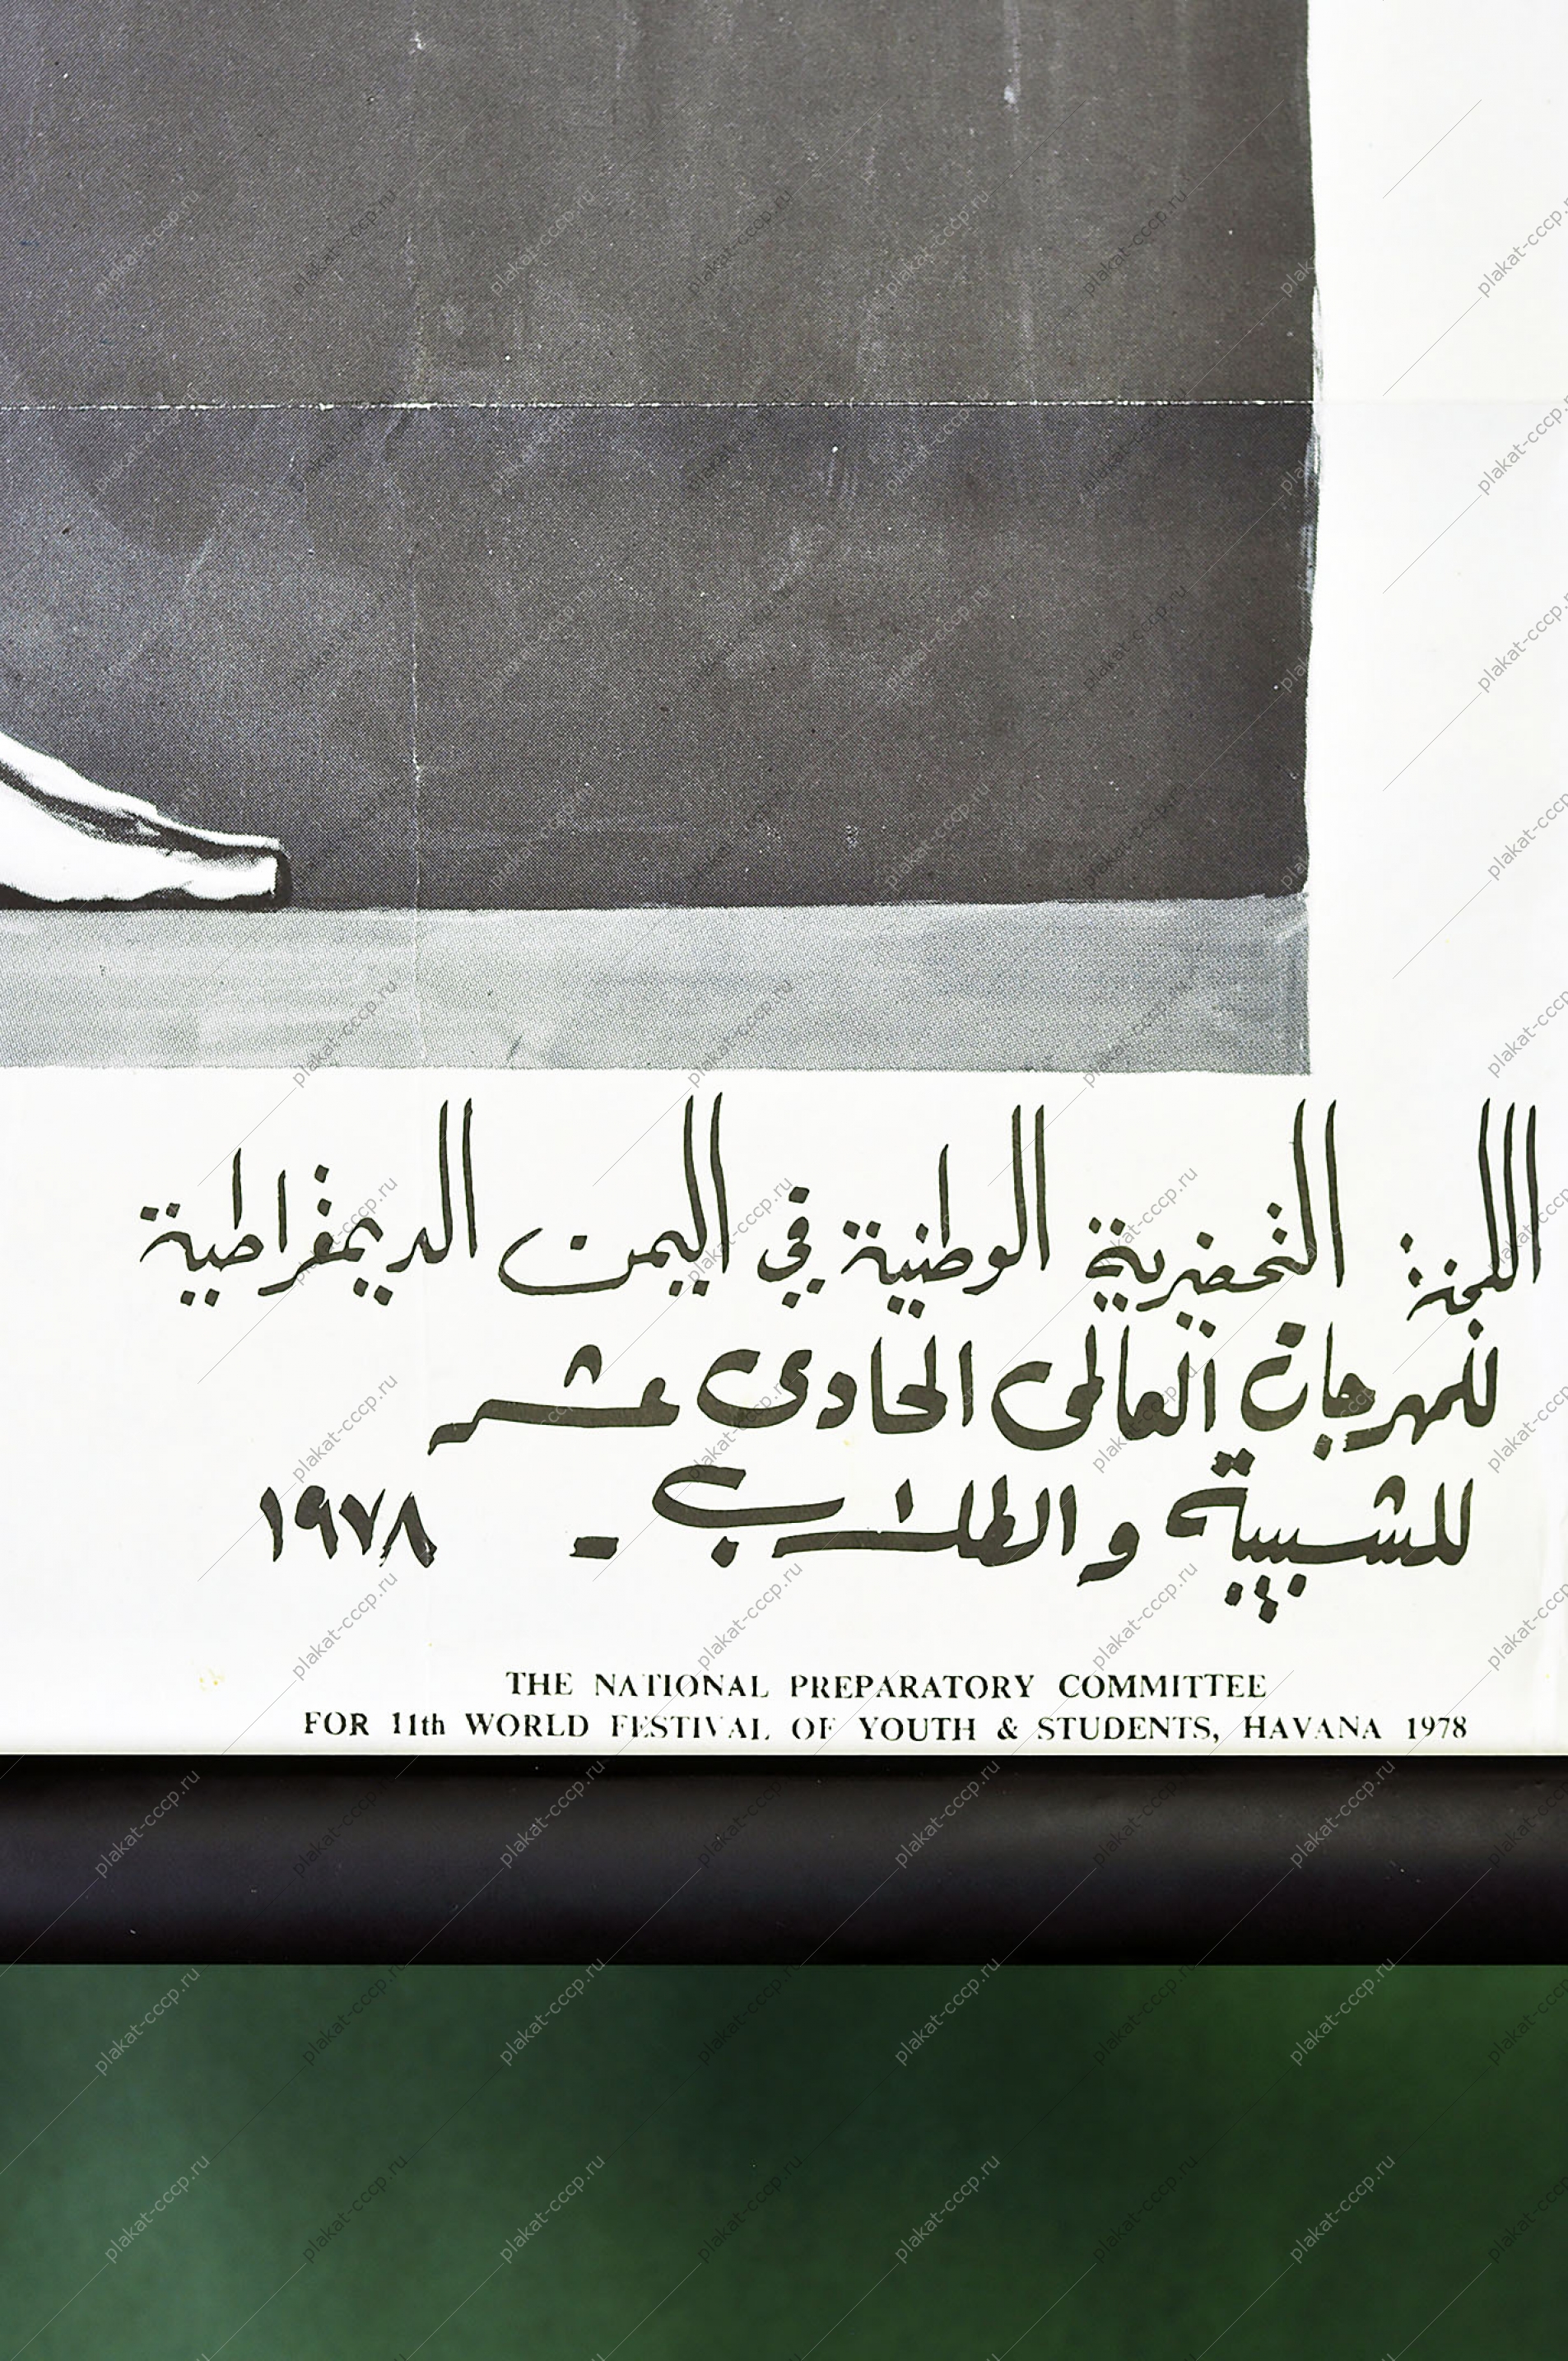 اللجنة التحضيرية الوطنية في اليمن الديمقراطية
للمهرجان العالمى الحادى عشر
للشبيبة والطلاب - ١٩٧٨
THE NATIONAL PREPARATORY COMMITTEE
FOR 11th WORLD FESTIVAL OF YOUTH & STUDENTS, HAVANA 1978
plakat-cccp.ru